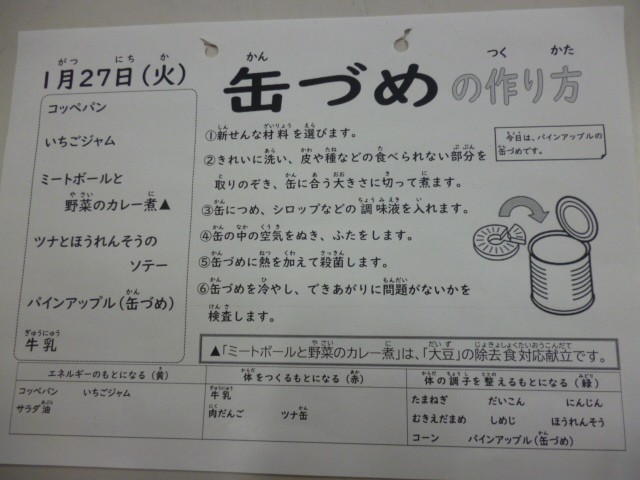 1月27日(火)
コッペパン
いちごジャム
ミートボールと
野菜のカレー煮▲
ツナとほうれんそうの
ソテー
パインアップル(缶づめ)
牛乳
缶づめの作り方
今日は、パインアップルの
缶づめです。
①新せんな材料を選びます。
②きれいに洗い、皮や種などの食べられない部分を
取りのぞき、缶に合う大きさに切って煮ます。
③缶につめ、シロップなどの調味液を入れます。
④缶の中の空気をぬき、ふたをします。
⑤缶づめに熱を加えて殺菌します。
⑥缶づめを冷やし、できあがりに問題がないかを
検査します。
▲「ミートボールと野菜のカレー煮」は、「大豆」の除去食対応献立です。
エネルギーのもとになる(黄)
コッペパン いちごジャム
サラダ油
体をつくるもとになる(赤)
牛乳
肉だんご ツナ缶
体の調子を整えるもとになる(緑)
たまねぎ だいこん にんじん
むきえだまめ しめじ ほうれんそう
コーン パインアップル(缶づめ)